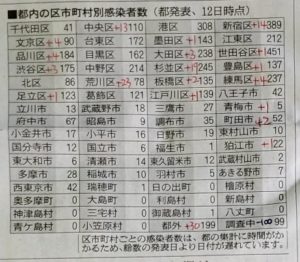 ■都内の区市町村別感染者数(都発表、12日時点)
千代田区 41 中央区+13110 港区 308 新宿区+14389
文京区+4 90 台東区 172 墨田区+1143 江東区 212
品川区+4184 目黒区 162 大田区+3238 世田谷区+1451
渋谷区+3175 中野区 214 杉並区+1245 豊島区+1137
北区 86 荒川区+23 78 板橋区+2135 練馬区+4237
足立区+1 葛飾区 江戸川区+1139 八王子市 42
立川市 13 武蔵野市 18 三鷹市 27 青梅市+1 5
府中市 68 昭島市 9 調布市 35 町田市+2 52
小金井市 17 小平市 16 日野市 19 東村山市 10
国分寺市 12 国立市 6 福生市 1 狛江市+1 22
東大和市 6 清瀬市 14 東久留米市 12 武蔵村山市 2
多摩市 28 稲城市 10 羽村市 5 あきる野市 7
西東京市 42 瑞穂町 1 日の出町 0 檜原村 0
奥多摩町 0 大島町 0 利島村 0 新島村 0
神津島村 0 三宅村 0 御蔵島村 1 八丈町 0
青ケ島村 0 小笠原村 0 都外+30199 調査中-100 99
区市町村ごとの感染者数は、都の集計に時間がか
かるため、総数の発表日より日付が遅れています。